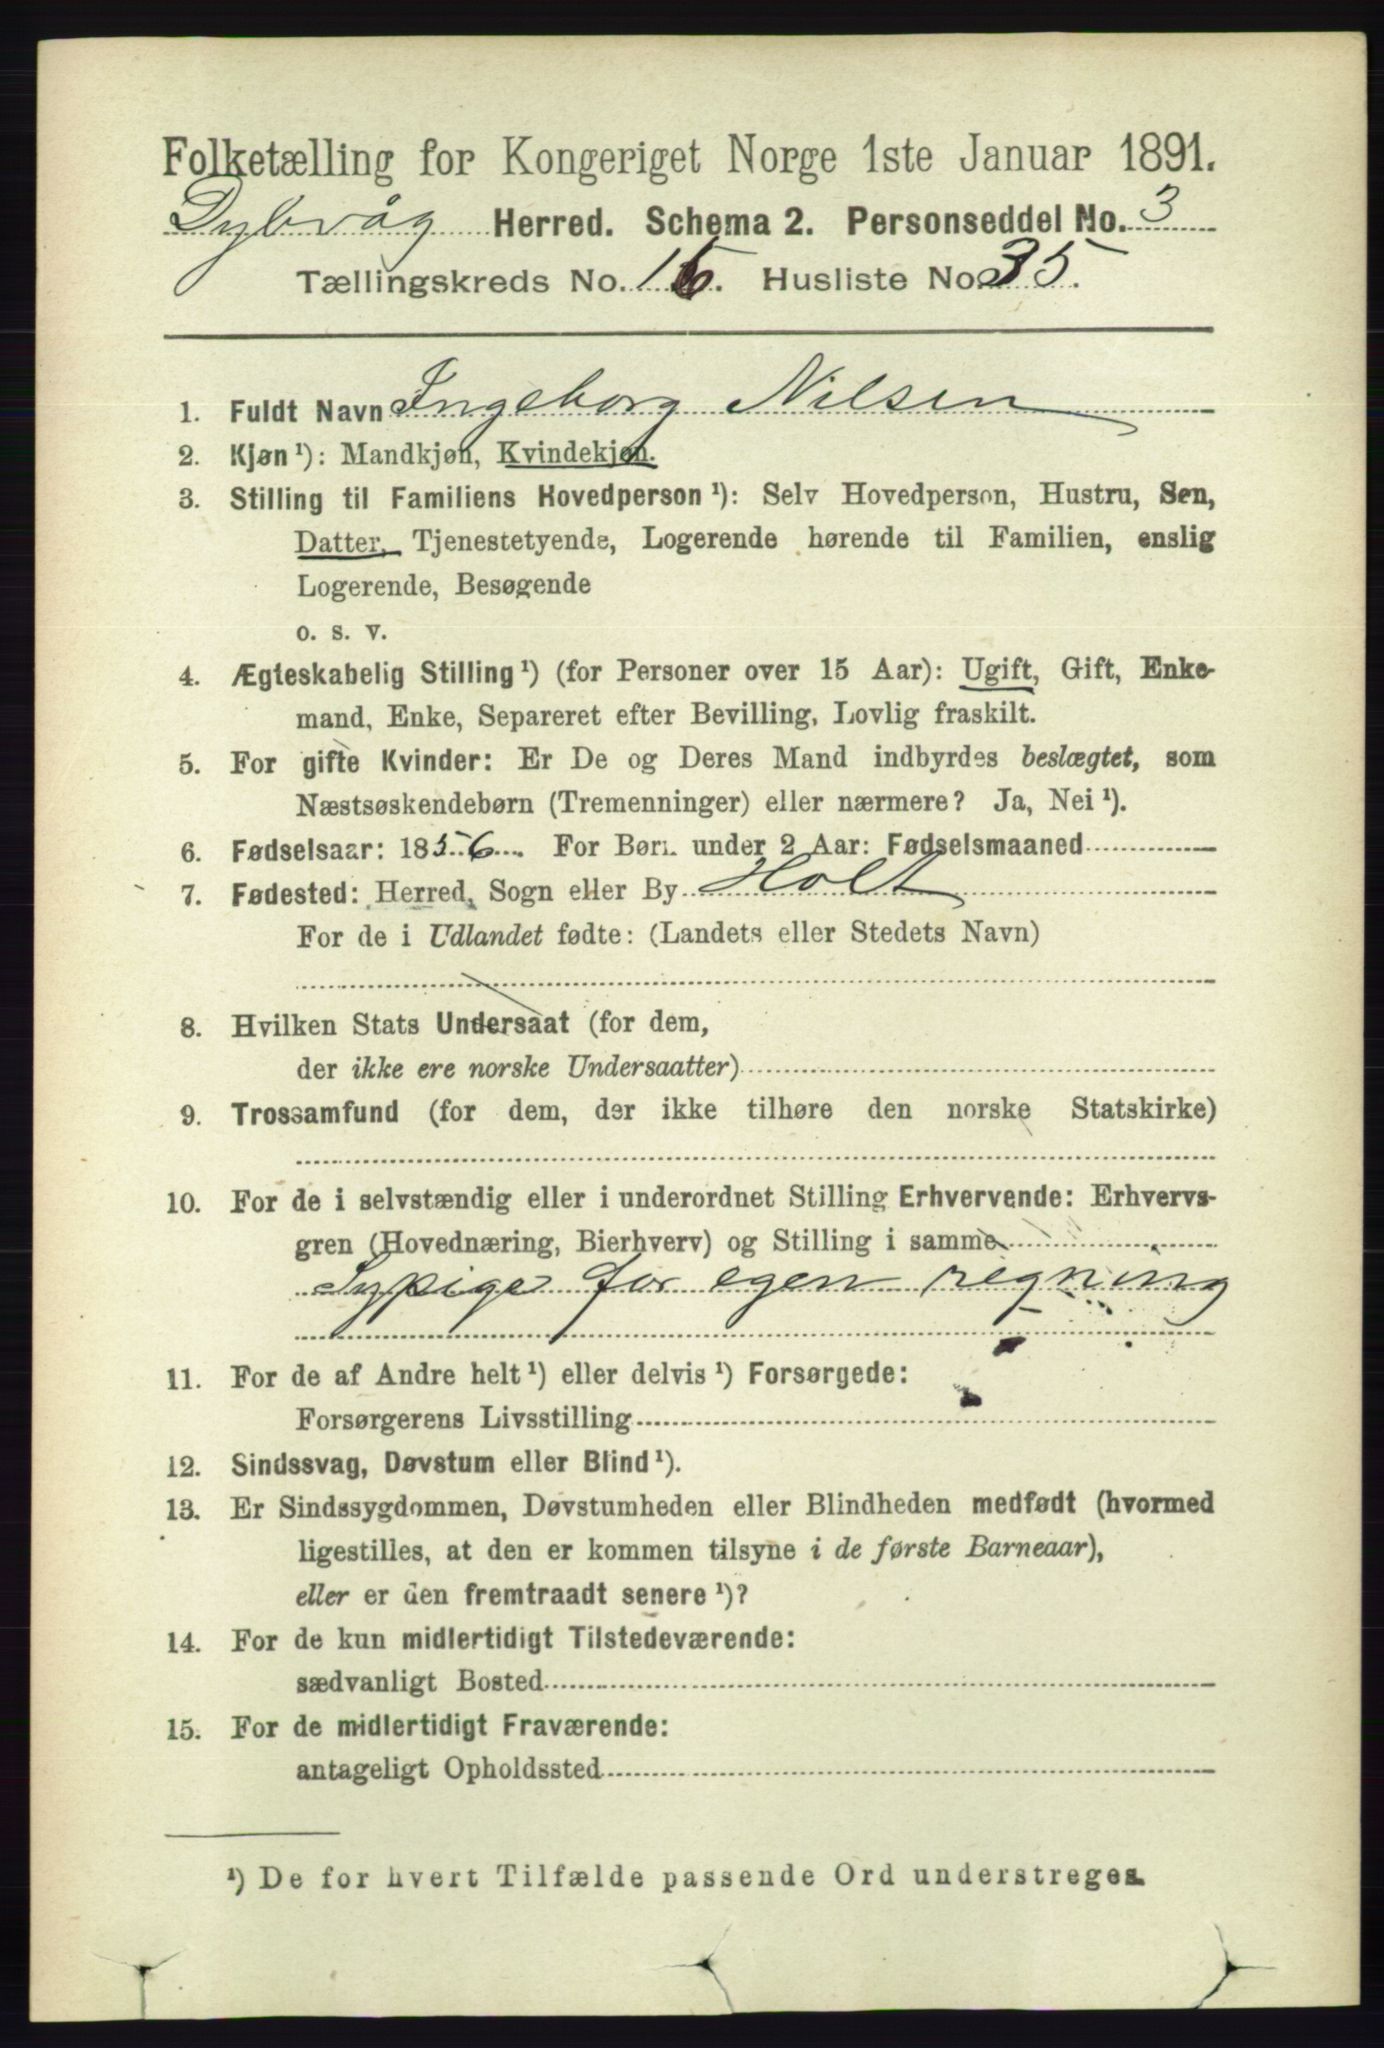 Folketælling for Kongeriget Norge 1ste Januar 1891.
Dybvåg Herred. Schema 2. Personseddel No. 3
Tællingskreds No. 16. Husliste No. 35.
1. Fuldt Navn Ingeborg Nilsen
2. Kjøn¹): Mandkjøn, Kvindekjøn.
3. Stilling til Familiens Hovedperson¹): Selv Hovedperson, Hustru, Søn,
Datter, Tjenestetyende, Logerende hørende til Familien, enslig
Logerende, Besøgende
o. s. v.
4. Ægteskabelig Stilling¹) (for Personer over 15 Aar): Ugift, Gift, Enke-
mand, Enke, Separeret efter Bevilling, Lovlig fraskilt.
5. For gifte Kvinder: Er De og Deres Mand indbyrdes beslægtet, som
Næstsøskendebørn (Tremenninger) eller nærmere? Ja, Nei¹).
6. Fødselsaar: 1856. For Børn under 2 Aar: Fødselsmaaned
7. Fødested: Herred, Sogn eller By Holt
For de i Udlandet fødte: (Landets eller Stedets Navn)
8. Hvilken Stats Undersaat (for dem,
der ikke ere norske Undersaatter)
9. Trossamfund (for dem, der ikke tilhøre den norske Statskirke)
10. For de i selvstændig eller i underordnet Stilling Erhvervende: Erhvervs-
gren (Hovednæring, Bierhverv) og Stilling i samme
Sypige for egen regning
11. For de af Andre helt¹) eller delvis¹) Forsørgede:
Forsørgerens Livsstilling
12. Sindssvag, Døvstum eller Blind¹).
13. Er Sindssygdommen, Døvstumheden eller Blindheden medfødt (hvormed
ligestilles, at den er kommen tilsyne i de første Barneaar),
eller er den fremtraadt senere¹)?
14. For de kun midlertidigt Tilstedeværende:
sædvanligt Bosted
15. For de midlertidigt Fraværende:
antageligt Opholdssted
¹) De for hvert Tilfælde passende Ord understreges.